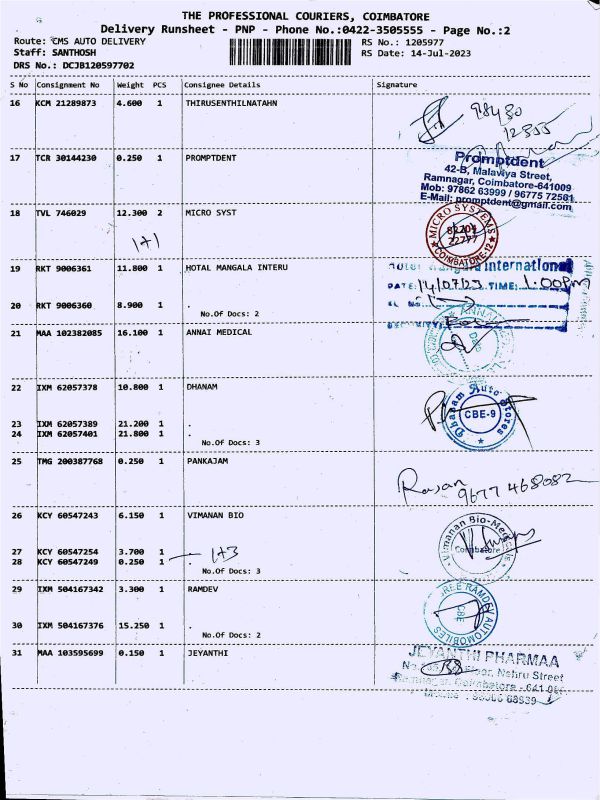 THE PROFESSIONAL COURIERS, COIMBATORE
Delivery Runsheet - PNP - Phone No.:0422-3505555 - Page No.:2
Route: CMS AUTO DELIVERY RS No.: 1205977
Staff: SANTHOSH RS Date: 14-Jul-2023
DRS No.: DCJB120597702
S No Consignment No Weight PCS Consignee Details Signature
16 KCM 21289873 4.600 1 THIRUSENTHILNATAHN
98430
12355
17 TCR 30144230 0.250 1 PROMPTDENT
Promptdent
42-B, Malaviya Street,
Ramnagar, Coimbatore-641009
Mob: 97862 63999 / 96775 72501
E-Mail: promptdent@gmail.com
18 TVL 746029 12.300 2 MICRO SYST
1+1
MICRO SYSTEMS
82209
22777
COIMBATORE-12
19 RKT 9006361 11.800 1 HOTAL MANGALA INTERU
International
DATE: 14/07/23 TIME: 1:00Pm
20 RKT 9006360 8.900 1 .
No.Of Docs: 2
21 MAA 102382085 16.100 1 ANNAI MEDICAL
22 IXM 62057378 10.800 1 DHANAM
Dhanam Auto Stores
CBE-9
23 IXM 62057389 21.200 1 .
24 IXM 62057401 21.800 1 .
No.Of Docs: 3
25 TMG 200387768 0.250 1 PANKAJAM
Rajan
9677 468082
26 KCY 60547243 6.150 1 VIMANAN BIO
Vimanan Bio-Med
Coimbatore
27 KCY 60547254 3.700 1 .
28 KCY 60547249 0.250 1 .
1+3
No.Of Docs: 3
29 IXM 504167342 3.300 1 RAMDEV
RAMDEV AUTOMOBILES
CBE
30 IXM 504167376 15.250 1 .
No.Of Docs: 2
31 MAA 103595699 0.150 1 JEYANTHI
JEYANTHI PHARMAA
Nehru Street
Ramnagar, Coimbatore